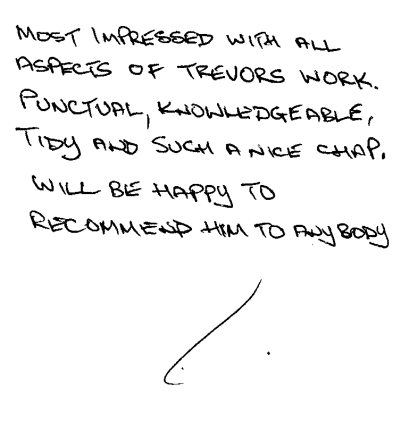 MOST IMPRESSED WITH ALL
ASPECTS OF TREVORS WORK.
PUNCTUAL, KNOWLEDGEABLE,
TIDY AND SUCH A NICE CHAP.
WILL BE HAPPY TO
RECOMMEND HIM TO ANYBODY